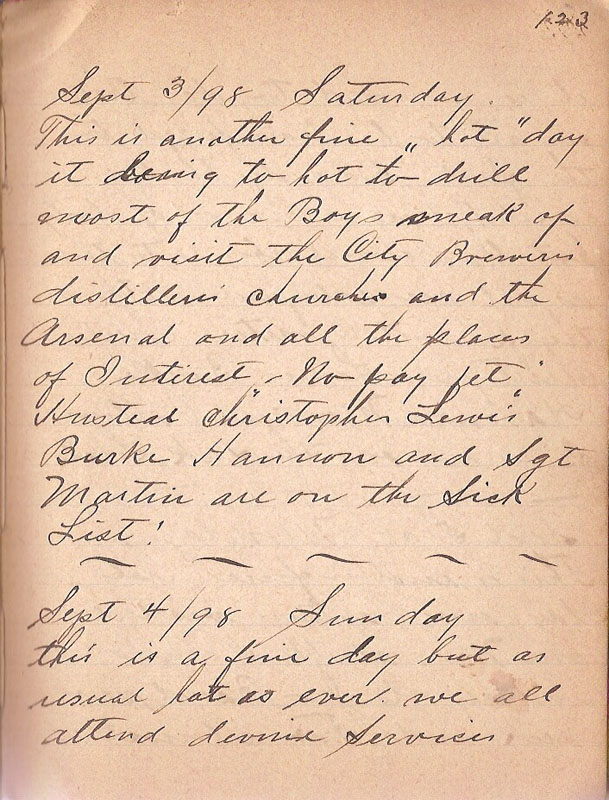 123
Sept 3/98 Saturday.
This is another fine „ hot " day
it being to hot to drill
most of the Boys sneak of
and visit the City Breweris
distilleris churches and the
Arsenal and all the places
of Interest - No pay yet "
Husteal Christopher Lewis
Burke Hannon and Sgt
Martin are on the Sick
List!
Sept 4/98 Sunday
this is a fine day but as
usual hot as ever. we all
attend devine services